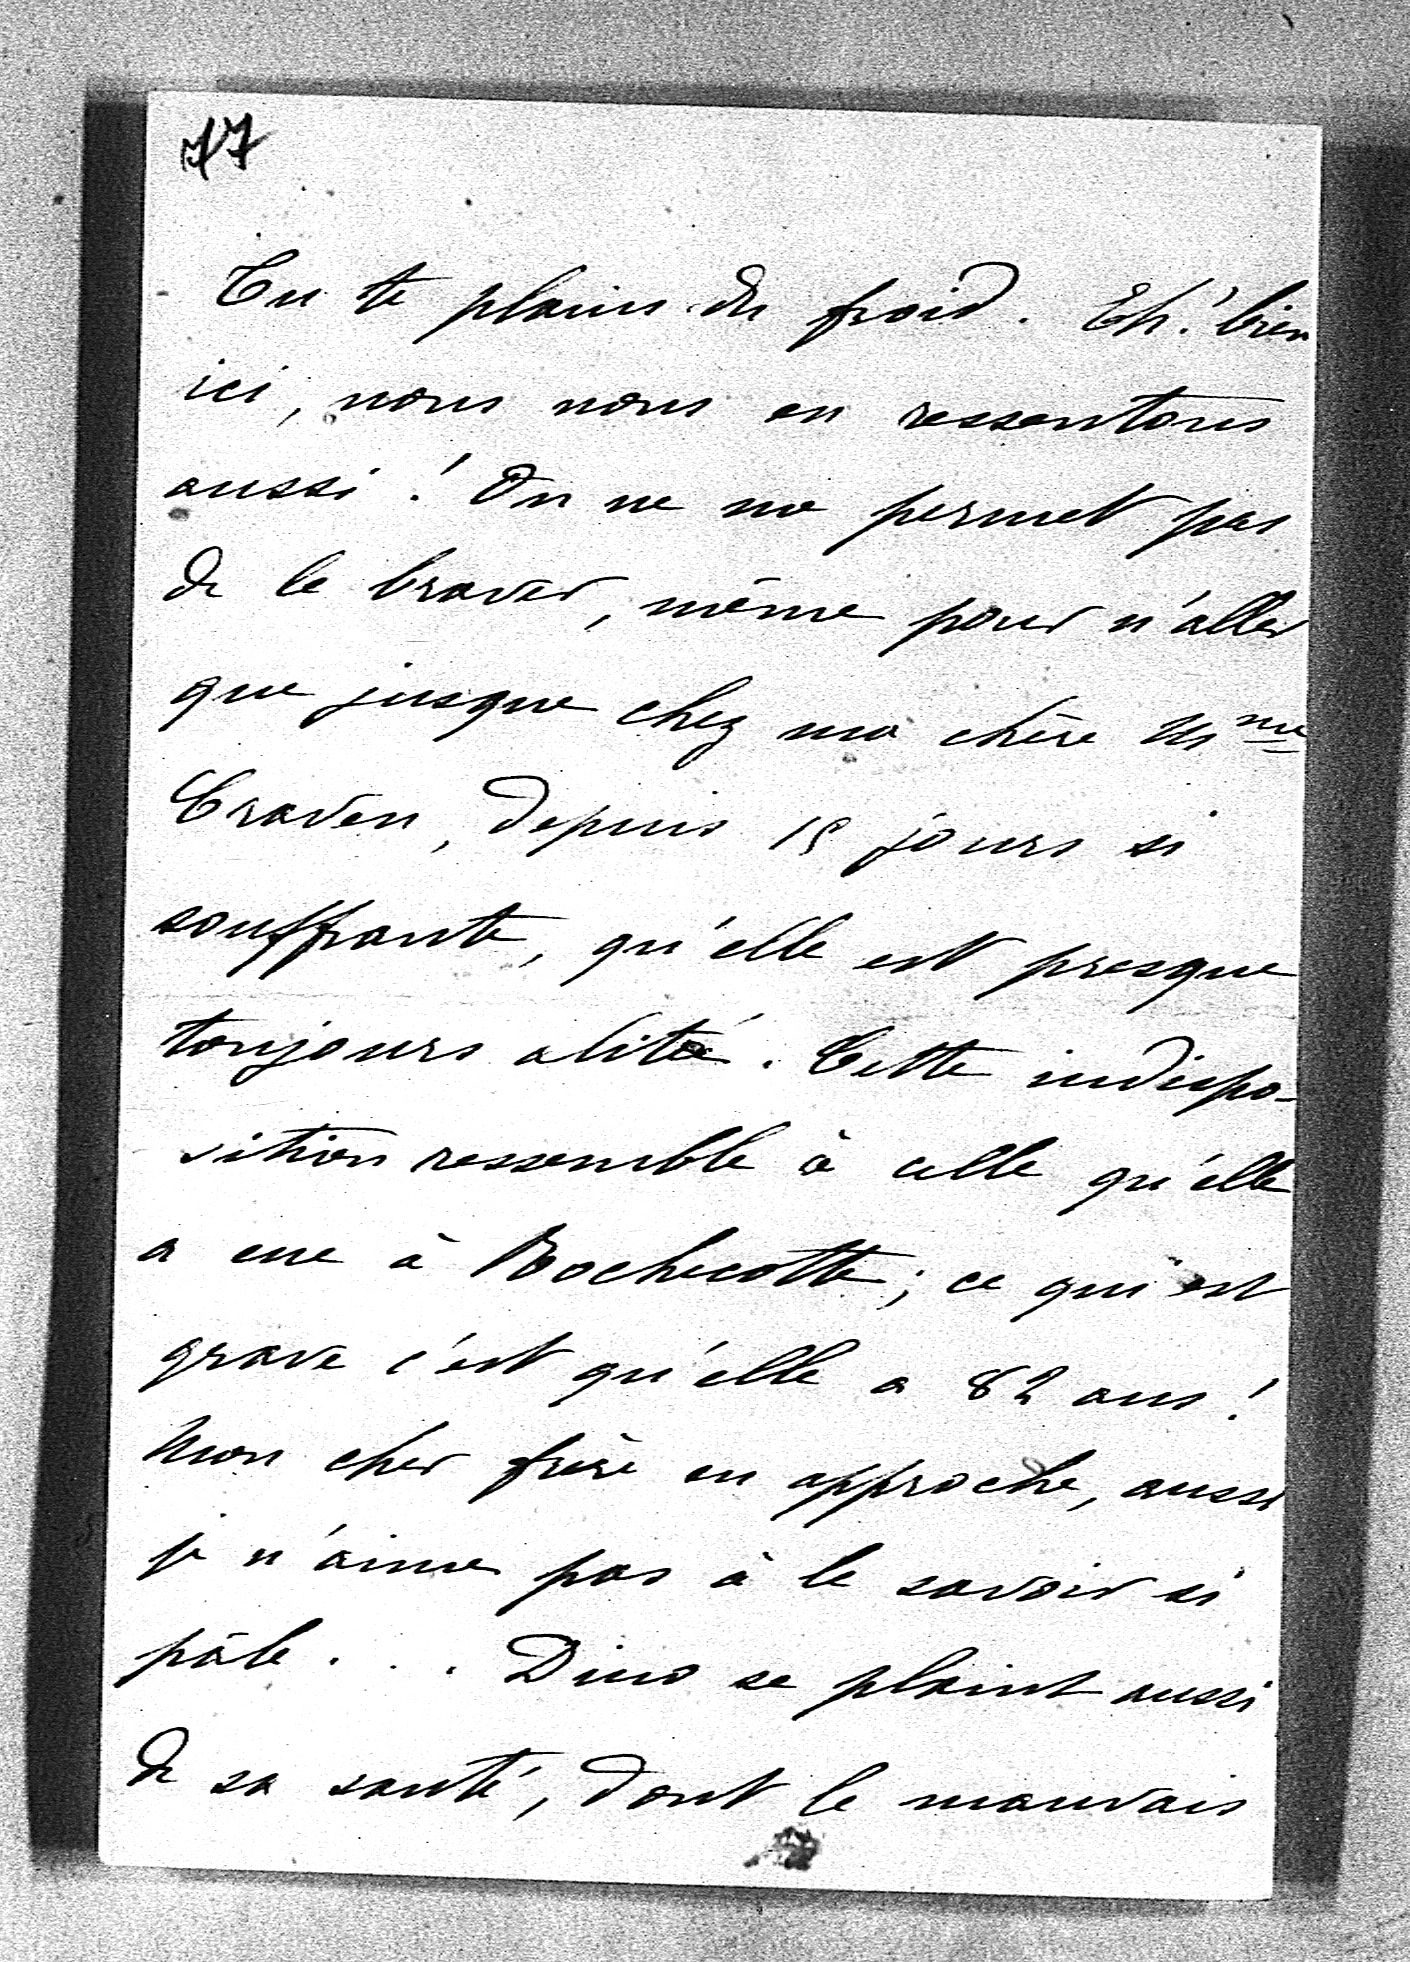 77
Tu te plains du froid. Eh! bien
ici, nous nous en ressentons
aussi! On ne me permet pas
de le braver, même pour n'aller
que jusque chez ma chère Mme
Craven, depuis 15 jours si
souffrante, qu'elle est presque
toujours alité. Cette indispo-
sition ressemble à celle qu'elle
a eue à Rochecotte; ce qui est
grave c'est qu'elle a 82 ans!
Mon cher frère en approche, aussi
je n'aime pas à le savoir si
pâle... Dino se plaint aussi
de sa santé, dont le mauvais